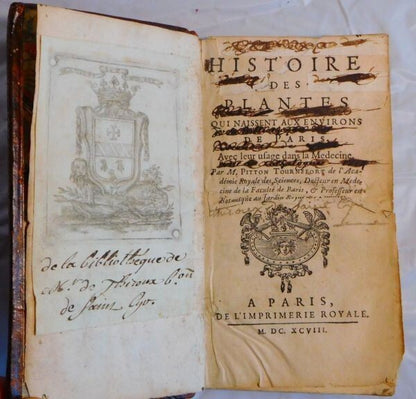 de la bibliotheque de
Mr. de Thiroux b.on
de Saint Cyr.
HISTOIRE
DES
PLANTES
QUI NAISSENT AUX ENVIRONS
DE PARIS,
Avec leur usage dans la Medecine.
Par M. PITTON TOURNEFORT, de l'Aca-
démie Royale des Sciences, Docteur en Mede-
cine de la Faculté de Paris, & Professeur en
Botanique au Jardin
A PARIS,
DE L'IMPRIMERIE ROYALE.
M. DC. XCVIII.